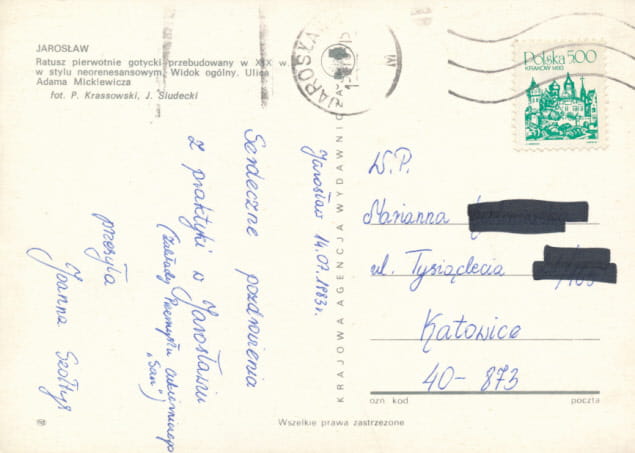 JAROSŁAW
Ratusz pierwotnie gotycki przebudowany w XIX w.
w stylu neorenesansowym. Widok ogólny. Ulica
Adama Mickiewicza
fot. P. Krassowski, J. Siudecki
JAROSŁA
Polska 5.00
KRAKÓW 1493
Jarosław 14.07.1983r.
Serdeczne pozdrowienia
z praktyki w Jarosławiu
(Zakłady Przemysłu Cukierniczego
"San")
przesyła
Joanna Szołtys
KRAJOWA AGENCJA WYDAWNICZA
W.P.
Marianna
ul. Tysiąclecia
Katowice
40-873
ozn. kod
poczta
Wszelkie prawa zastrzeżone